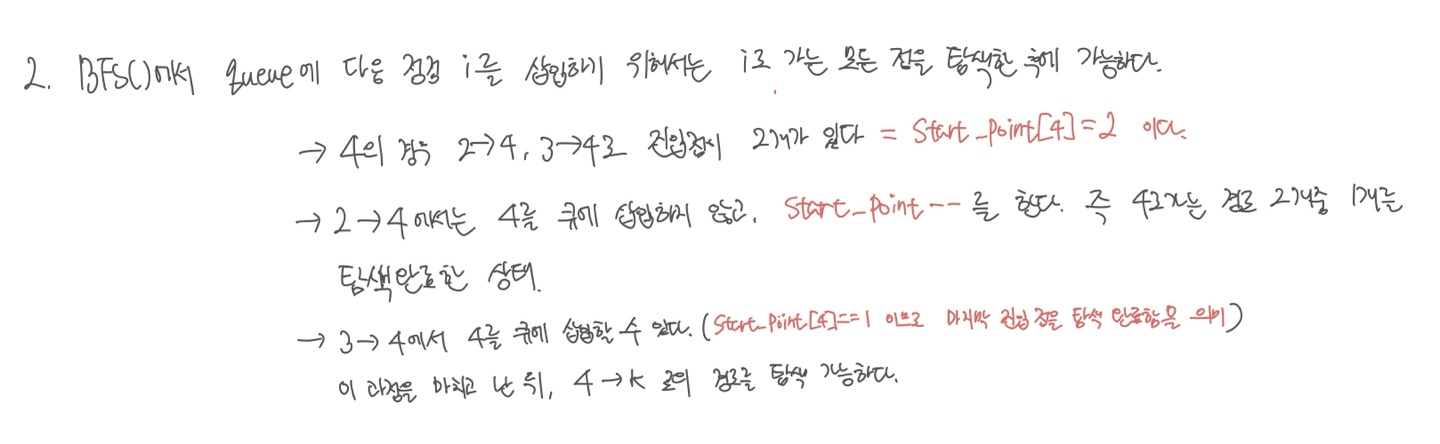 2. BFS()에서 queue에 다음 정점 i를 삽입하기 위해서는 i로 가는 모든 점을 탐색한 후에 가능하다.
→ 4의 경우 2→4, 3→4로 진입점이 2개가 있다 = Start_point[4]=2 이다.
→ 2→4에서는 4를 큐에 삽입하지 않고, Start_point-- 를 한다. 즉 4로가는 경로 2개중 1개는
탐색완료한 상태.
→ 3→4에서 4를 큐에 삽입할 수 있다. (Start_Point[4]==1 이므로 마지막 진입 점을 탐색 완료함을 의미)
이 과정을 마치고 난 뒤, 4→k 로의 경로를 탐색 가능하다.